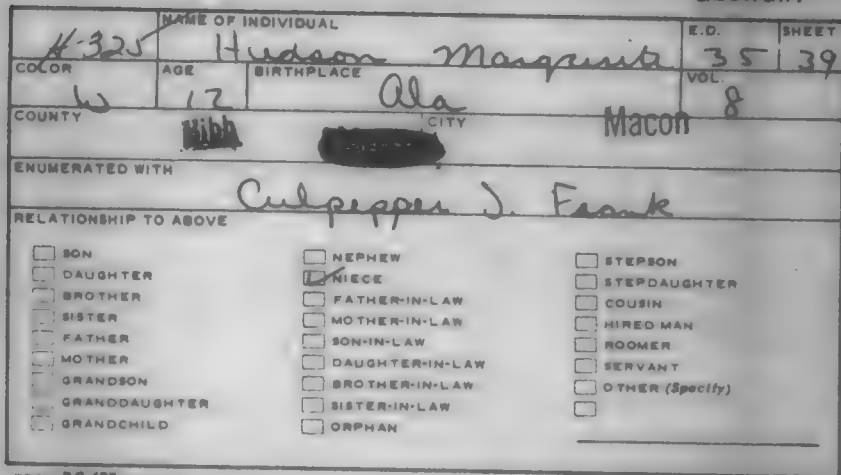 NAME OF INDIVIDUAL E.D. SHEET
H-325 Hudson Marguerite 35 39
COLOR AGE BIRTHPLACE VOL.
W 12 Ala 8
COUNTY CITY
Bibb Macon
ENUMERATED WITH
Culpepper J. Frank
RELATIONSHIP TO ABOVE
SON
DAUGHTER
BROTHER
SISTER
FATHER
MOTHER
GRANDSON
GRANDDAUGHTER
GRANDCHILD
NEPHEW
NIECE
FATHER-IN-LAW
MOTHER-IN-LAW
SON-IN-LAW
DAUGHTER-IN-LAW
BROTHER-IN-LAW
SISTER-IN-LAW
ORPHAN
STEPSON
STEPDAUGHTER
COUSIN
HIRED MAN
ROOMER
SERVANT
OTHER (Specify)